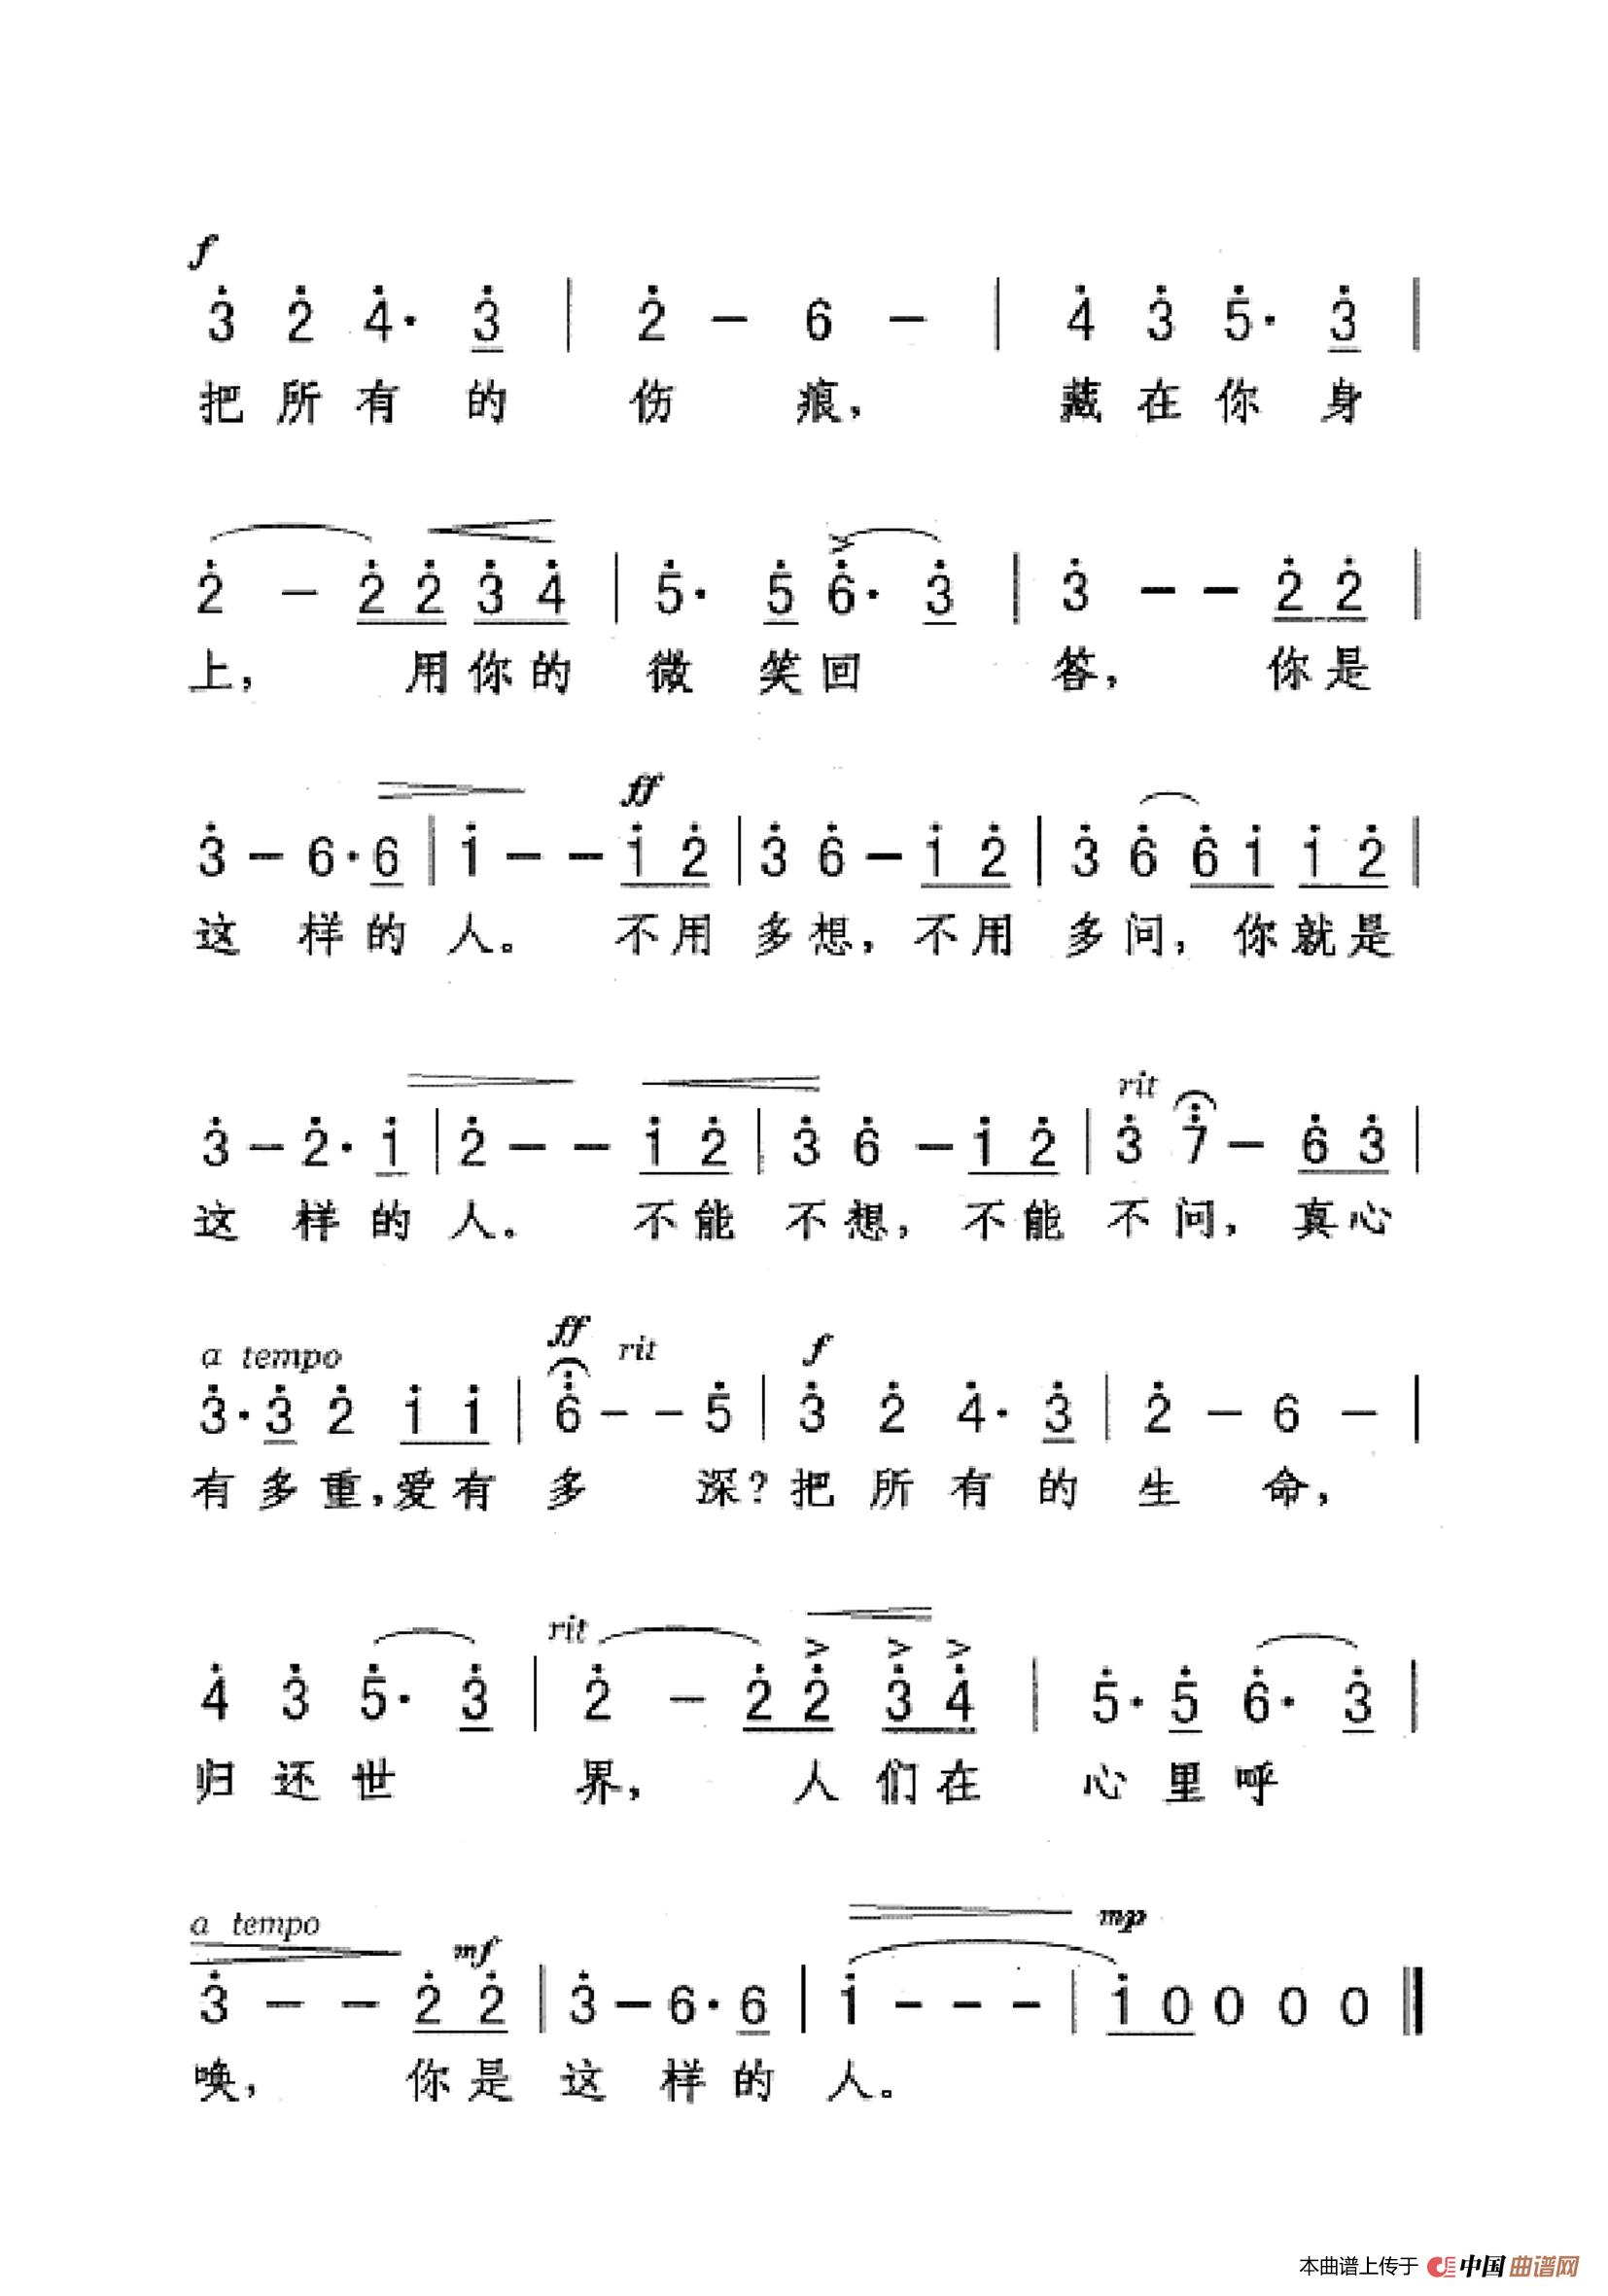 f
3̇ 2̇ 4̇· 3̇ | 2̇ – 6 – | 4̇ 3̇ 5̇· 3̇ |
把 所 有 的 伤 痕， 藏 在 你 身
2̇ – 2̇ 2̇ 3̇ 4̇ | 5̇· 5̇ 6̇· 3̇ | 3̇ – – 2̇ 2̇ |
上， 用 你 的 微 笑 回 答， 你 是
ff
3̇ – 6· 6 | 1̇ – – 1̇ 2̇ | 3̇ 6̇ – 1̇ 2̇ | 3̇ 6̇ 6̇ 1̇ 1̇ 2̇ |
这 样 的 人。 不 用 多 想，不 用 多 问，你 就 是
rit
3̇ – 2̇· 1̇ | 2̇ – – 1̇ 2̇ | 3̇ 6̇ – 1̇ 2̇ | 3̇ 7̇ – 6̇ 3̇ |
这 样 的 人。 不 能 不 想，不 能 不 问，真 心
a tempo ff rit f
3̇· 3̇ 2̇ 1̇ 1̇ | 6̇ – – 5̇ | 3̇ 2̇ 4̇· 3̇ | 2̇ – 6 – |
有 多 重，爱 有 多 深？把 所 有 的 生 命，
rit
4̇ 3̇ 5̇· 3̇ | 2̇ – 2̇ 2̇ 3̇ 4̇ | 5̇· 5̇ 6̇· 3̇ |
归 还 世 界， 人 们 在 心 里 呼
a tempo mf mp
3̇ – – 2̇ 2̇ | 3̇ – 6· 6 | 1̇ – – – | 1̇ 0 0 0 0 ‖
唤， 你 是 这 样 的 人。
本曲谱上传于 中国曲谱网